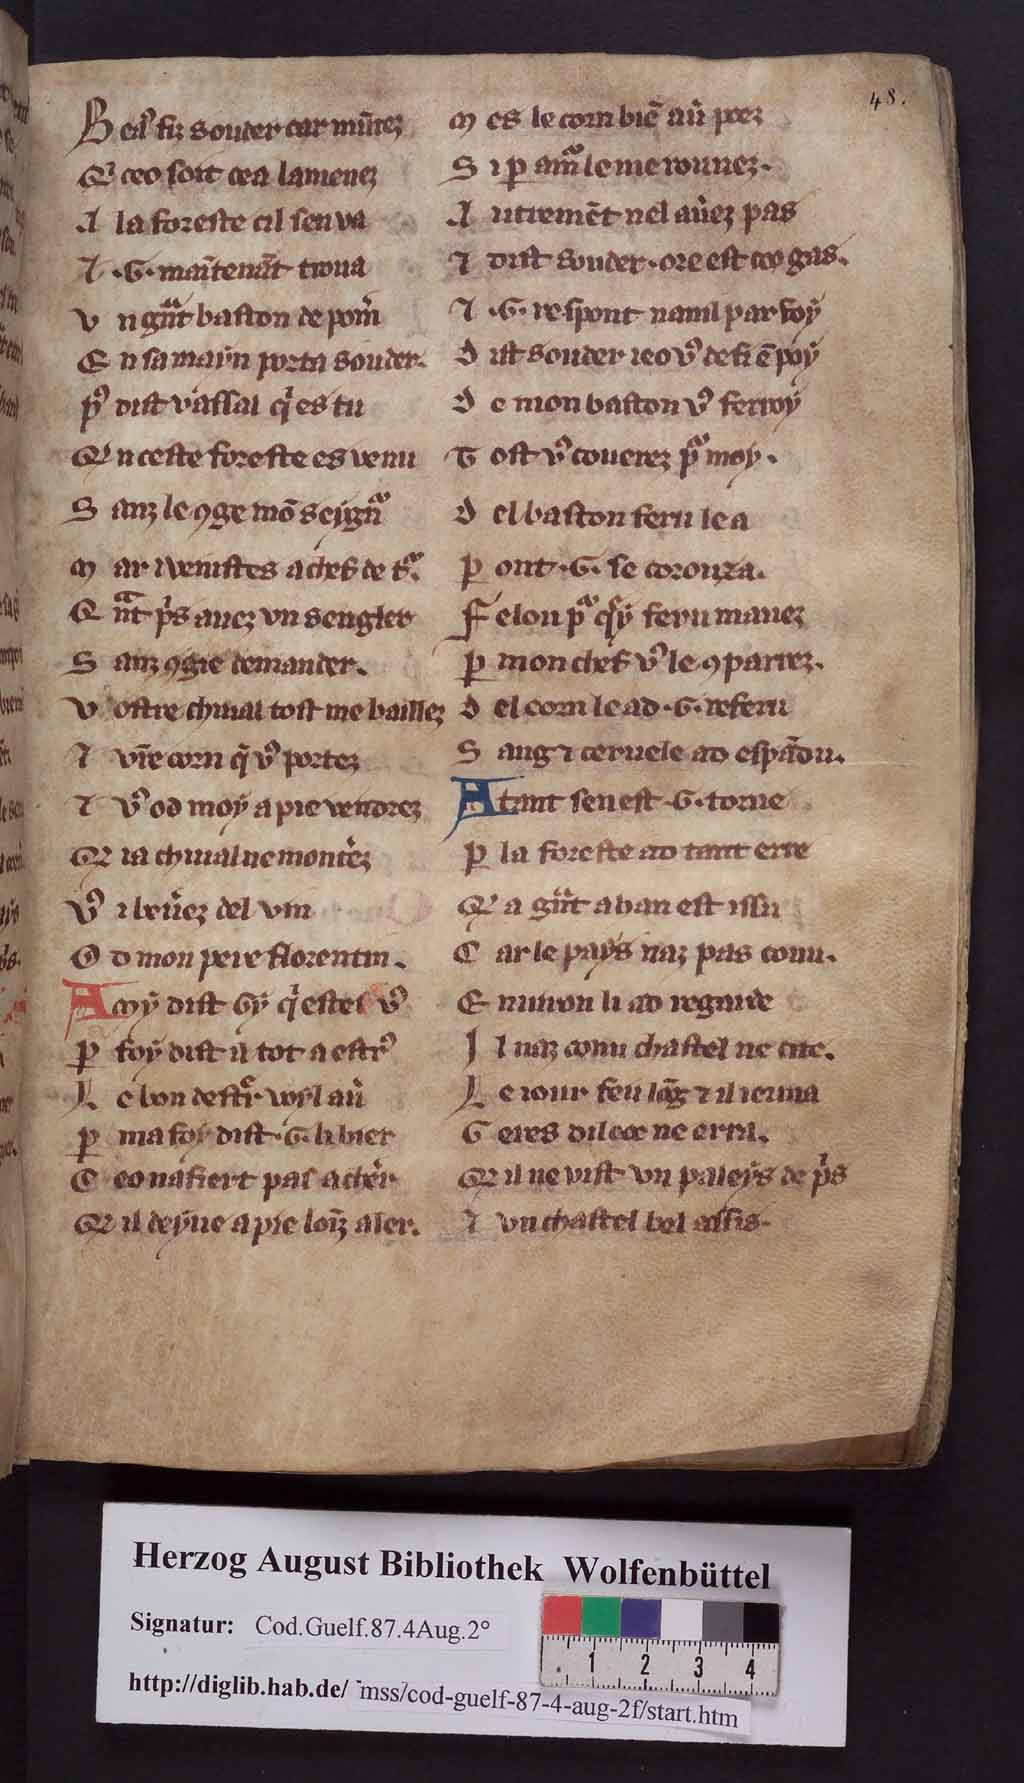 48.
B eaˢ fiz souder car mūtez
Q' ceo soit cea lamenez
A la foreste cil sen va
⁊ .G. maītenāt troua
V n gᵃnt baston de pom̄
E n sa maẏn porta souder.
pˢ dist vassal q' es tu
Q' n ceste foreste es venu
S anz le ꝯge mō seygn̄
M ar i venistes a chef de
Q nᵃt p's auez vn sengler
S anz ꝯgie demander.
V ostre chiual tost me baillez
⁊ vr̄e corn q̄ vˢ portez
⁊ vˢ od moẏ a pie vendrez
Q' ia chiual ne mont'ez
Vˢ i beu'ez del vin
O d mon pere florentin.
A mẏ dist Gẏ q' estes vˢ
ꝑ foẏ dist il tot a estrˢ
L e bon destr' wẏl au'
ꝑ ma foẏ dist .G. li bier
C eo nafiert pas a ch'er
Q' il deẏne a pie loīz aler.
M es le corn biē au'prez
S i ꝑ amᵒ le me rouuez.
A utremēt nel au'ez pas
⁊ dist souder . ore est ceo gas.
⁊ .G. respont nanil par foẏ
D ist souder ieo vˢ defi ē poẏ
D e mon baston vˢ ferroẏ
T ost vˢ couerez pᵒ moẏ .
D el baston feru le a
P ont .G. se corouza.
F elon pᵒ qᵒẏ feru mauez
ꝑ mon chef vˢ le ꝯparrez.
D el corn le ad .G. referu
S aug ⁊ ceruele ad espādu.
A tant sen est .G. torne
ꝑ la foreste ad tant erre
Q' a gᵃnt ahan est issu
C ar le paẏs naz pas conu.
E nuiron li ad regarde
I l naz conu chastel ne cite.
L e iour feu lōg ⁊ il ierma
G eres dilece ne erra.
Q' il ne vist vn paleẏs de p's
⁊ vn chastel bel assis.
Herzog August Bibliothek Wolfenbüttel
Signatur: Cod.Guelf.87.4Aug.2°
1 2 3 4
http://diglib.hab.de/ mss/cod-guelf-87-4-aug-2f/start.htm